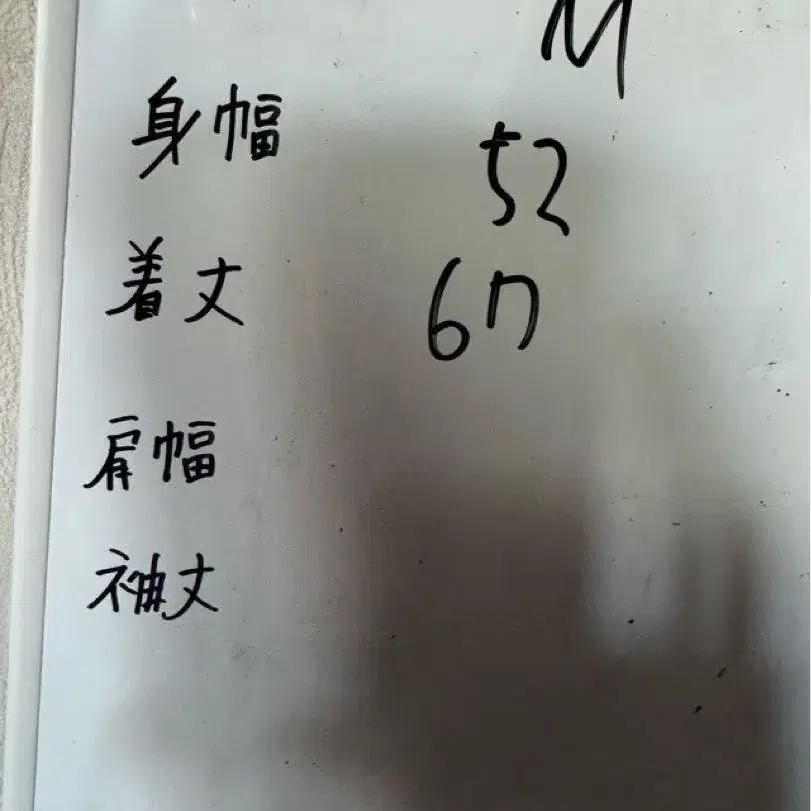 M
身幅 52
着丈 67
肩幅
袖丈